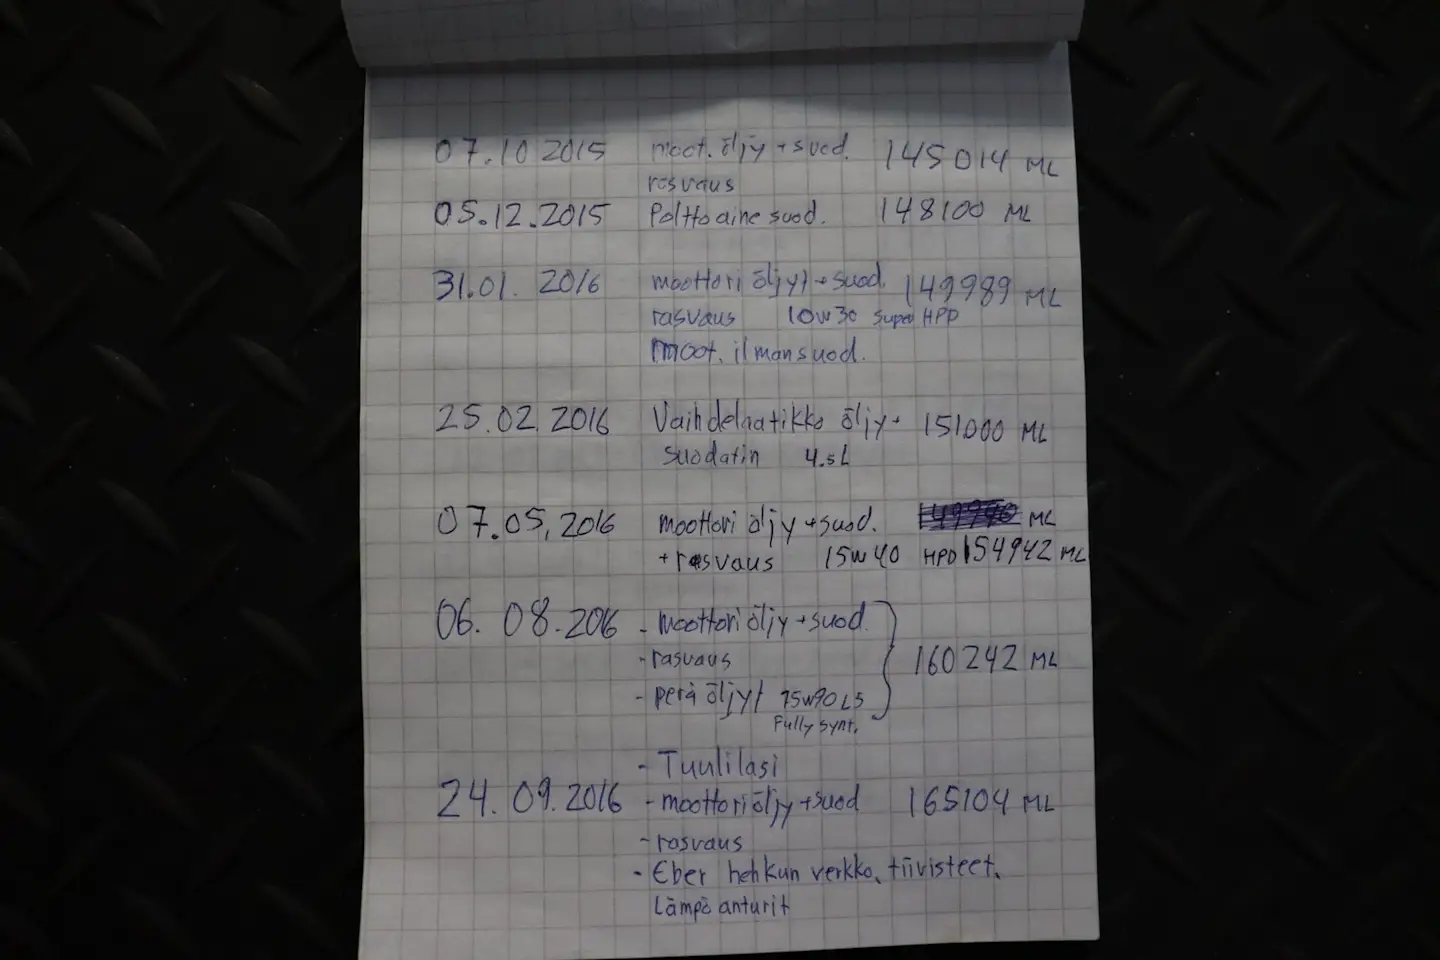 07.10 2015 moot. öljy + suod. 145014 ML
rasvaus
05.12.2015 Polttoaine suod. 148100 ML
31.01. 2016 moottori öljyt + suod. 149989 ML
rasvaus 10w30 Super HPD
moot. ilmansuod.
25.02 2016 Vaihdelaatikko öljy + 151000 ML
suodatin 4.5L
07.05,2016 moottori öljy + suod. ML
+ rasvaus 15w40 HPD 154942 ML
06. 08.2016 - moottori öljy + suod.
- rasvaus 160242 ML
- perä öljyt 75w90 LS
Fully Synt.
- Tuulilasi
24.09.2016 - moottori öljy + suod 165104 ML
- rasvaus
- Eber hehkun verkko, tiivisteet,
Lämpö anturit